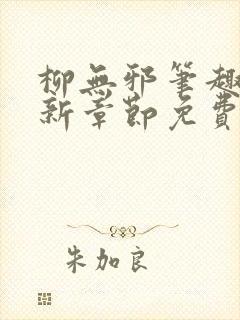 柳無邪筆趣
新章節免費
朱加良